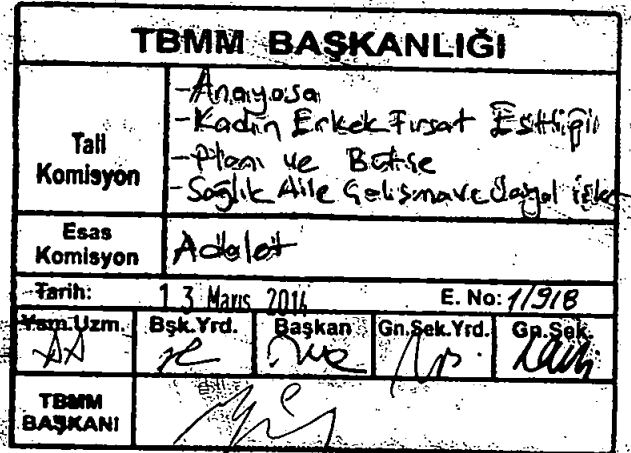 TBMM BAŞKANLIĞI
Tali Komisyon
-Anayasa
-Kadın Erkek Fırsat Eşitliği
-Plan ve Bütçe
-Sağlık Aile Çalışma ve Sosyal işler
Esas Komisyon
Adalet
Tarih: 13 Mart 2014 E. No: 1/918
Ysm.Uzm. Bşk.Yrd. Başkan Gn.Sek.Yrd. Gn.Sek.
TBMM BAŞKANI